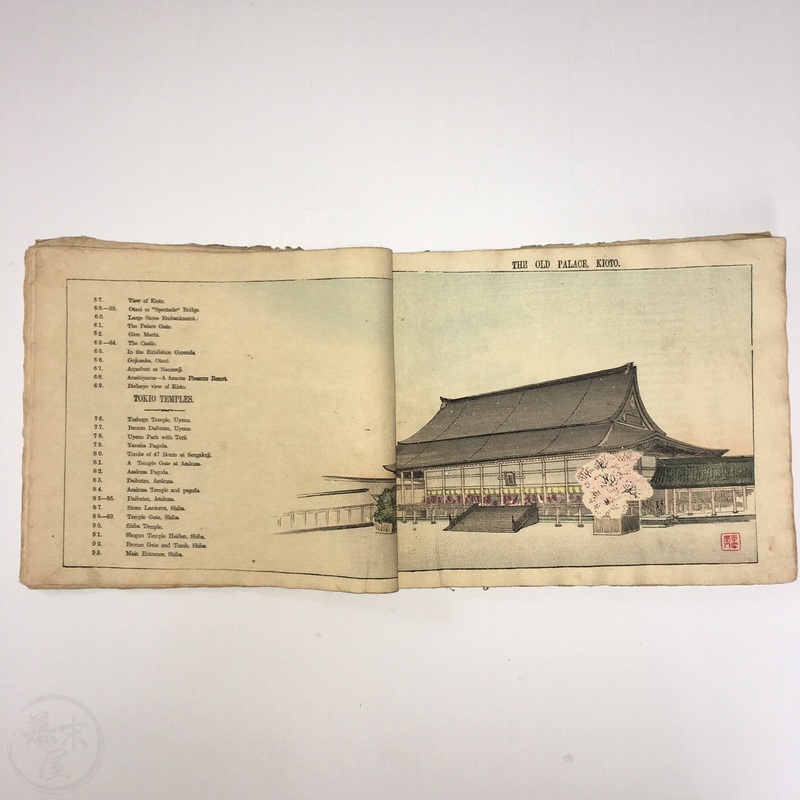 57. View of Kioto.
58.—59. Otani or "Spectacle" Bridge.
60. Large Stone Embankment.
61. The Palace Gate.
62. Gion Machi.
63—64. The Castle.
65. In the Exhibition Grounds.
66. Gojiozaka, Otani.
67. Aqueduct at Nanzenji.
68. Arashiyama—A famous Pleasure Resort.
69. Birdseye view of Kioto.
TOKIO TEMPLES.
76. Toshogu Temple, Uyeno.
77. Bronze Daibutsu, Uyeno.
78. Uyeno Park with Torii.
79. Yanaka Pagoda.
80. Tombs of 47 Ronin at Sengakuji.
81. A Temple Gate at Asakusa.
82. Asakusa Pagoda.
83. Daibutsu, Asakusa.
84. Asakusa Temple and pagoda.
85—86. Daibutsu, Asakusa.
87. Stone Lanterns, Shiba.
88—89. Temple Gate, Shiba.
90. Shiba Temple.
91. Shogun Temple Haiden, Shiba.
92. Bronze Gate and Tomb, Shiba.
93. Main Entrance, Shiba.
THE OLD PALACE, KIOTO.
幕末屋